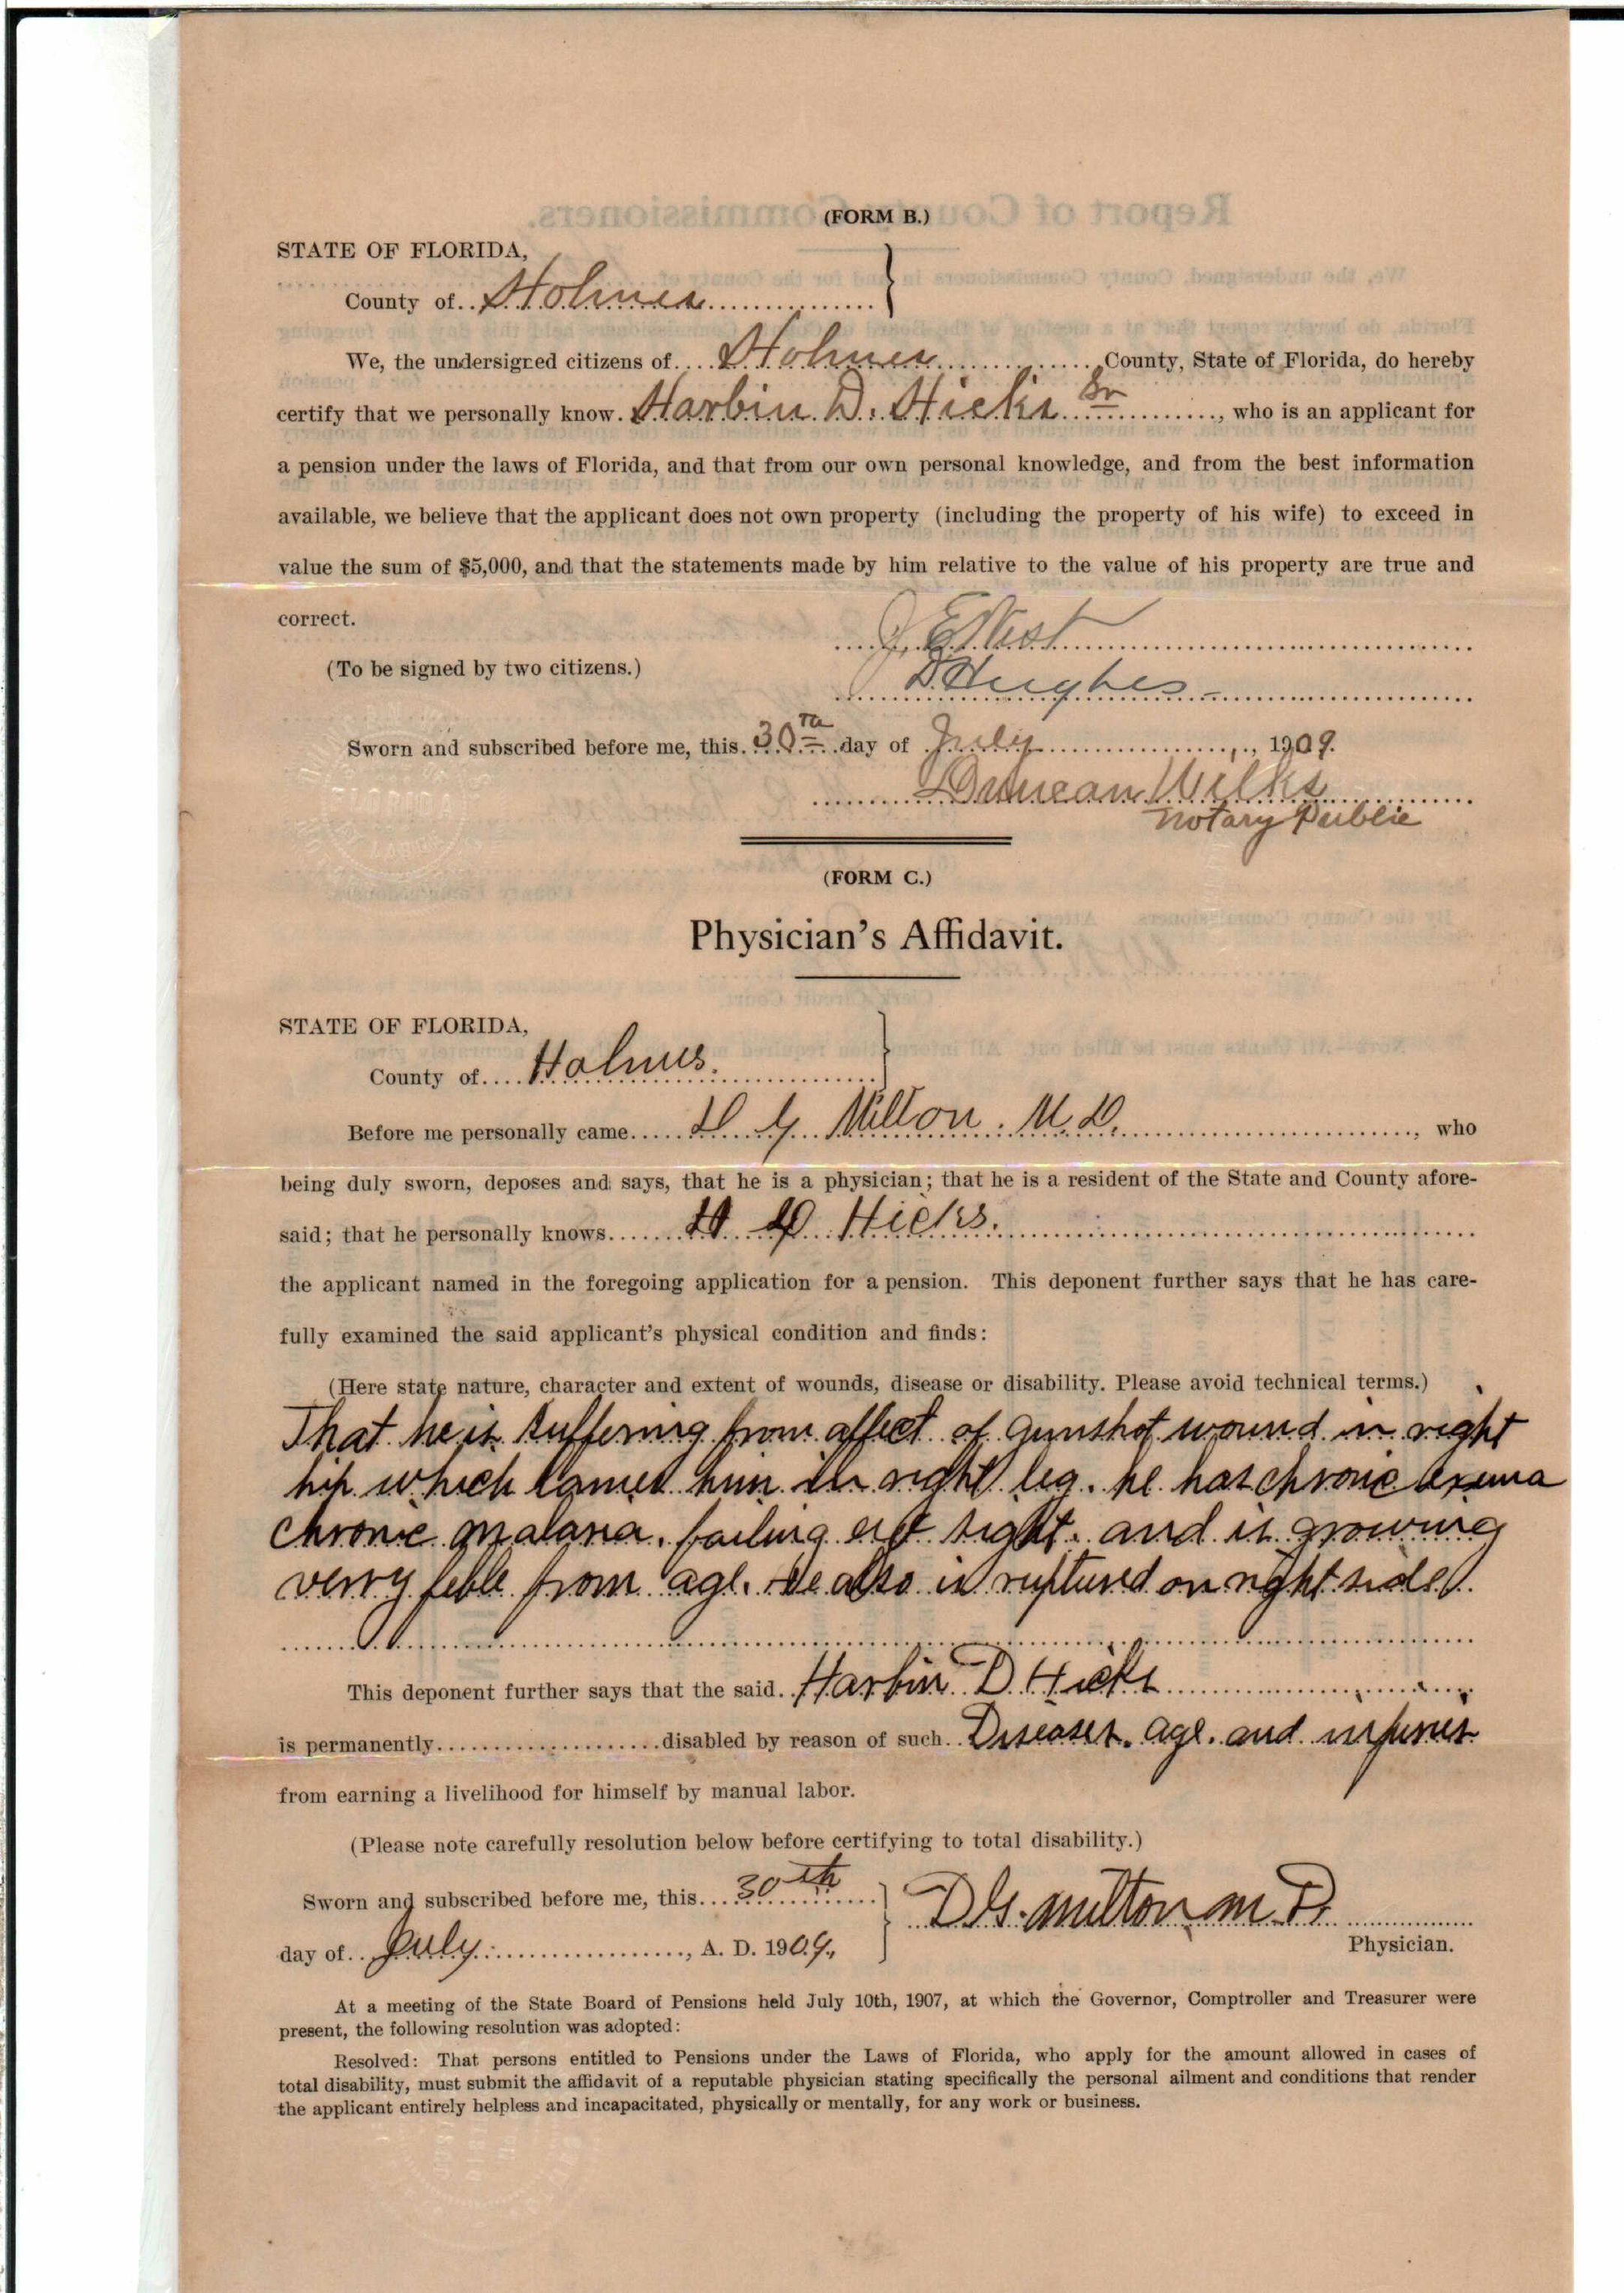 (FORM B.)
STATE OF FLORIDA,
County of Holmes }
We, the undersigned citizens of Holmes County, State of Florida, do hereby
certify that we personally know Harbin D. Hicks Sr, who is an applicant for
a pension under the laws of Florida, and that from our own personal knowledge, and from the best information
available, we believe that the applicant does not own property (including the property of his wife) to exceed in
value the sum of $5,000, and that the statements made by him relative to the value of his property are true and
correct.
J. E West
(To be signed by two citizens.)
D Hughes
Sworn and subscribed before me, this 30th day of July, 1909.
Duncan Wilks
Notary Public
(FORM C.)
Physician's Affidavit.
STATE OF FLORIDA,
County of Holmes. }
Before me personally came D G Milton. M.D., who
being duly sworn, deposes and says, that he is a physician; that he is a resident of the State and County afore-
said; that he personally knows H D Hicks.
the applicant named in the foregoing application for a pension. This deponent further says that he has care-
fully examined the said applicant's physical condition and finds:
(Here state nature, character and extent of wounds, disease or disability. Please avoid technical terms.)
That he is suffering from affect of gunshot wound in right
hip which lames him in right leg. he has chronic exema
chronic malaria. failing sight. and is growing
verry feble from age. He also is ruptured on right side.
This deponent further says that the said Harbin D Hicks
is permanently disabled by reason of such Diseases. age. and injuries
from earning a livelihood for himself by manual labor.
(Please note carefully resolution below before certifying to total disability.)
Sworn and subscribed before me, this 30th }
D G. Milton M. D.
day of July, A. D. 1909.,
Physician.
At a meeting of the State Board of Pensions held July 10th, 1907, at which the Governor, Comptroller and Treasurer were
present, the following resolution was adopted:
Resolved: That persons entitled to Pensions under the Laws of Florida, who apply for the amount allowed in cases of
total disability, must submit the affidavit of a reputable physician stating specifically the personal ailment and conditions that render
the applicant entirely helpless and incapacitated, physically or mentally, for any work or business.